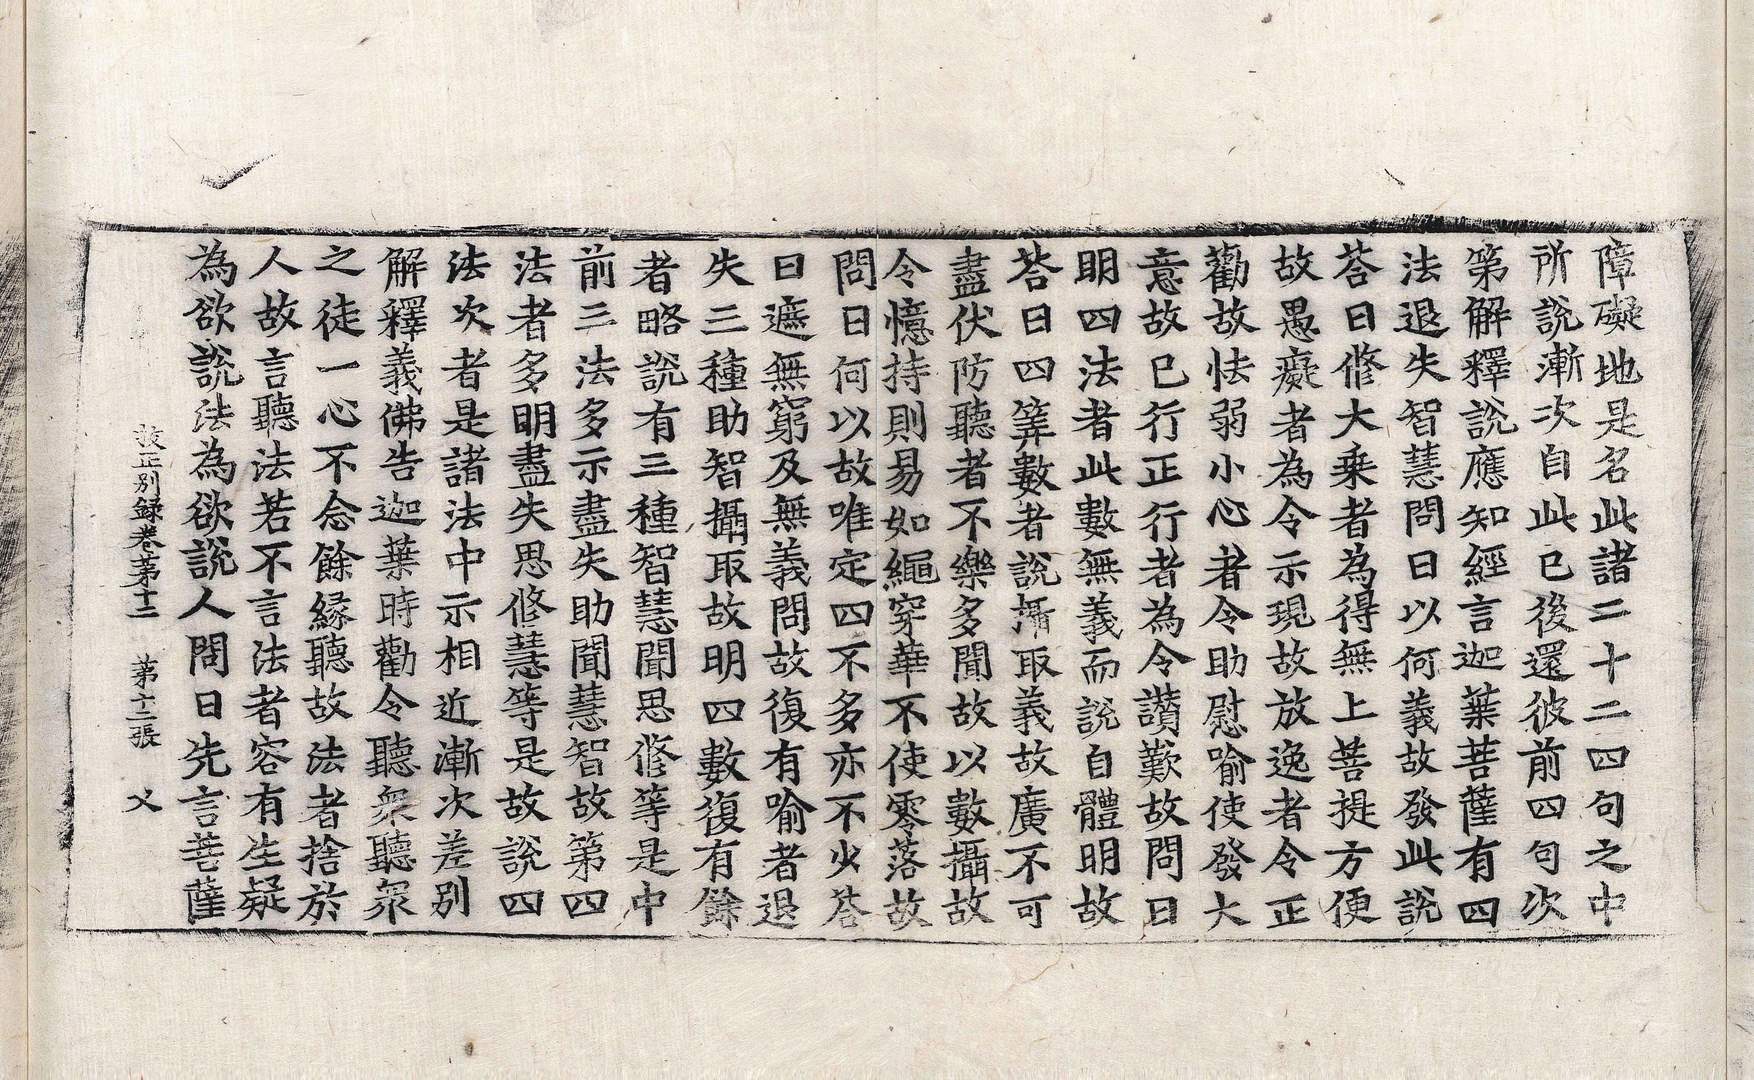 障礙地是名此諸二十二四句之中
所說漸次自此已後還彼前四句次
第解釋說應知經言迦葉菩薩有四
法退失智慧問曰以何義故發此說
荅曰修大乘者為得無上菩提方便
故愚癡者為令示現故放逸者令正
勸故怯弱小心者令助慰喻使發大
意故已行正行者為令讚歎故問曰
明四法者此數無義而說自體明故
荅曰四筭數者說攝取義故廣不可
盡伏防聽者不樂多聞故以數攝故
令憶持則易如繩穿華不使零落故
問曰何以故唯定四不多亦不少荅
曰遮無窮及無義問故復有喻者退
失三種助智攝取故明四數復有餘
者略說有三種智慧聞思修等是中
前三法多示盡失助聞慧智故第四
法者多明盡失思修慧等是故說四
法次者是諸法中示相近漸次差別
解釋義佛告迦葉時勸令聽眾聽眾
之徒一心不念餘緣聽故法者捨於
人故言聽法若不言法者容有生疑
為欲說法為欲說人問曰先言菩薩
校正別録卷第十二 第十二張 父